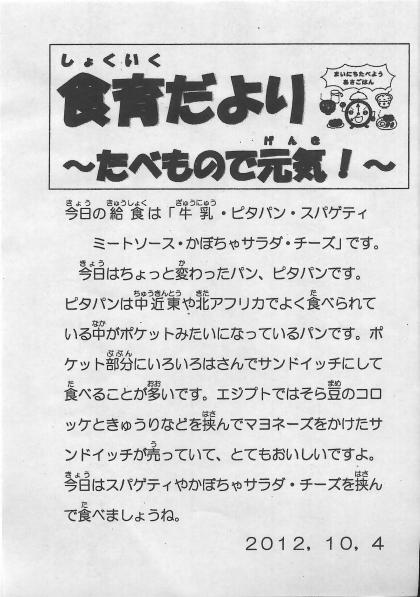 しょくいく
食育だより
まいにちたべよう
あさごはん
げんき
～たべもので元気！～
きょう きゅうしょく ぎゅうにゅう
今日の給食は「牛乳・ピタパン・スパゲティ
ミートソース・かぼちゃサラダ・チーズ」です。
きょう か
今日はちょっと変わったパン、ピタパンです。
ちゅうきんとう きた た
ピタパンは中近東や北アフリカでよく食べられて
なか
いる中がポケットみたいになっているパンです。ポ
ぶぶん
ケット部分にいろいろはさんでサンドイッチにして
た おお まめ
食べることが多いです。エジプトではそら豆のコロ
はさ
ッケときゅうりなどを挟んでマヨネーズをかけたサ
う
ンドイッチが売っていて、とてもおいしいですよ。
きょう はさ
今日はスパゲティやかぼちゃサラダ・チーズを挟ん
た
で食べましょうね。
2012，10，4